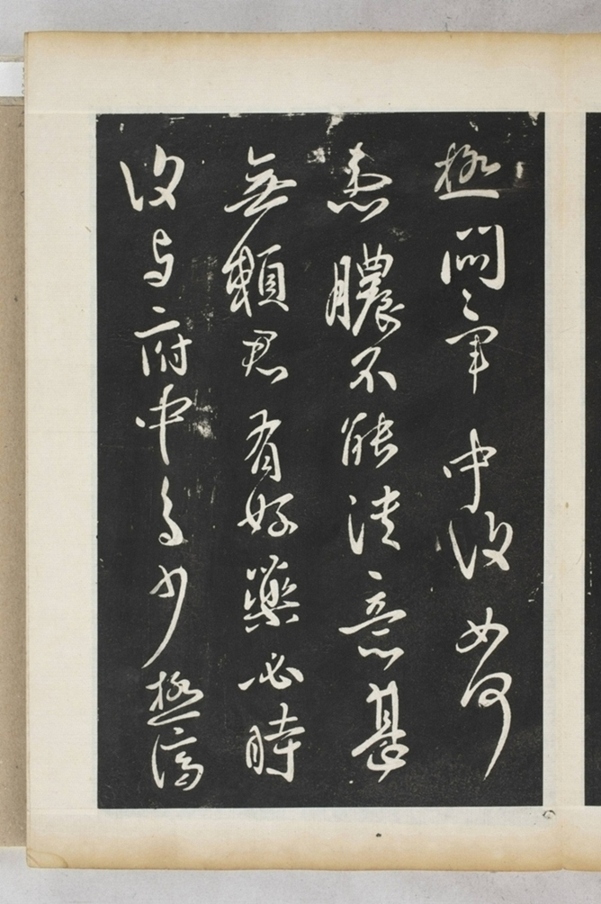 極悶〻軍中役如何
患膿不能潰意甚
無賴君有好藥必時
與府中多少極濟